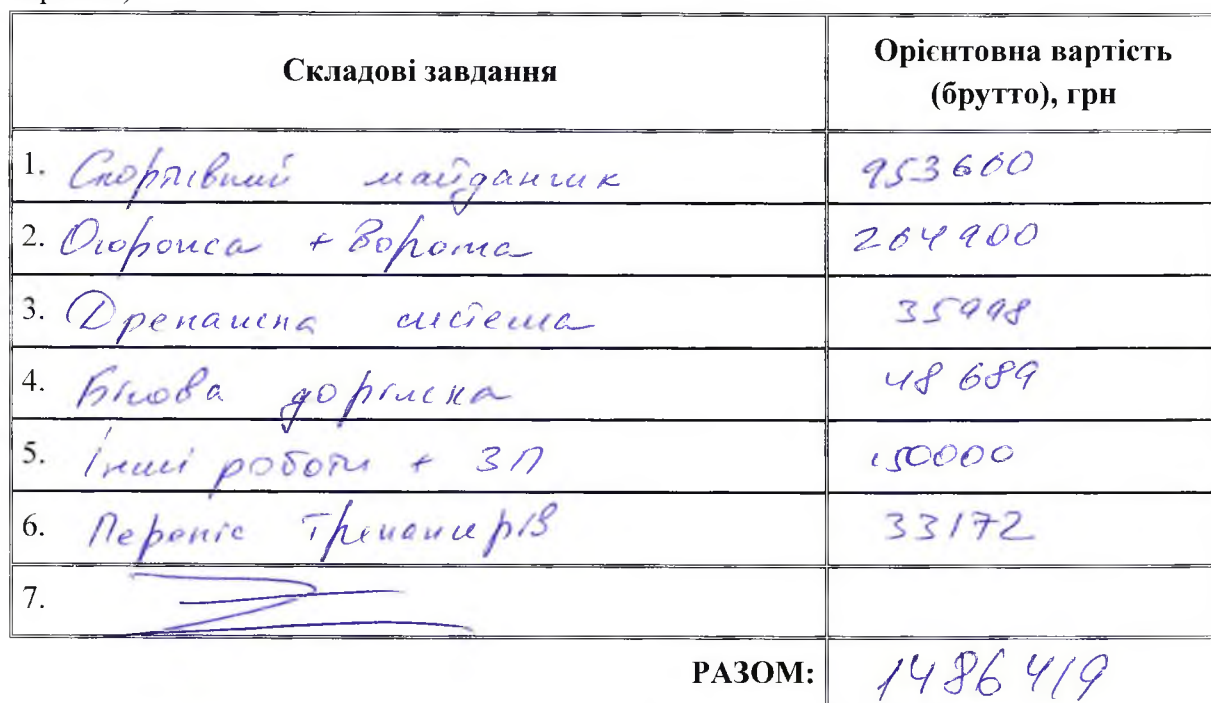 Складові завдання
Орієнтовна вартість
(брутто), грн
1. Спортивний майданчик 953600
2. Огорожа + Ворота 264900
3. Дренажна система 35998
4. Бігова доріжка 48 689
5. Інші роботи + ЗП 150000
6. Переніс Тренажерів 33172
7.
РАЗОМ: 1486419